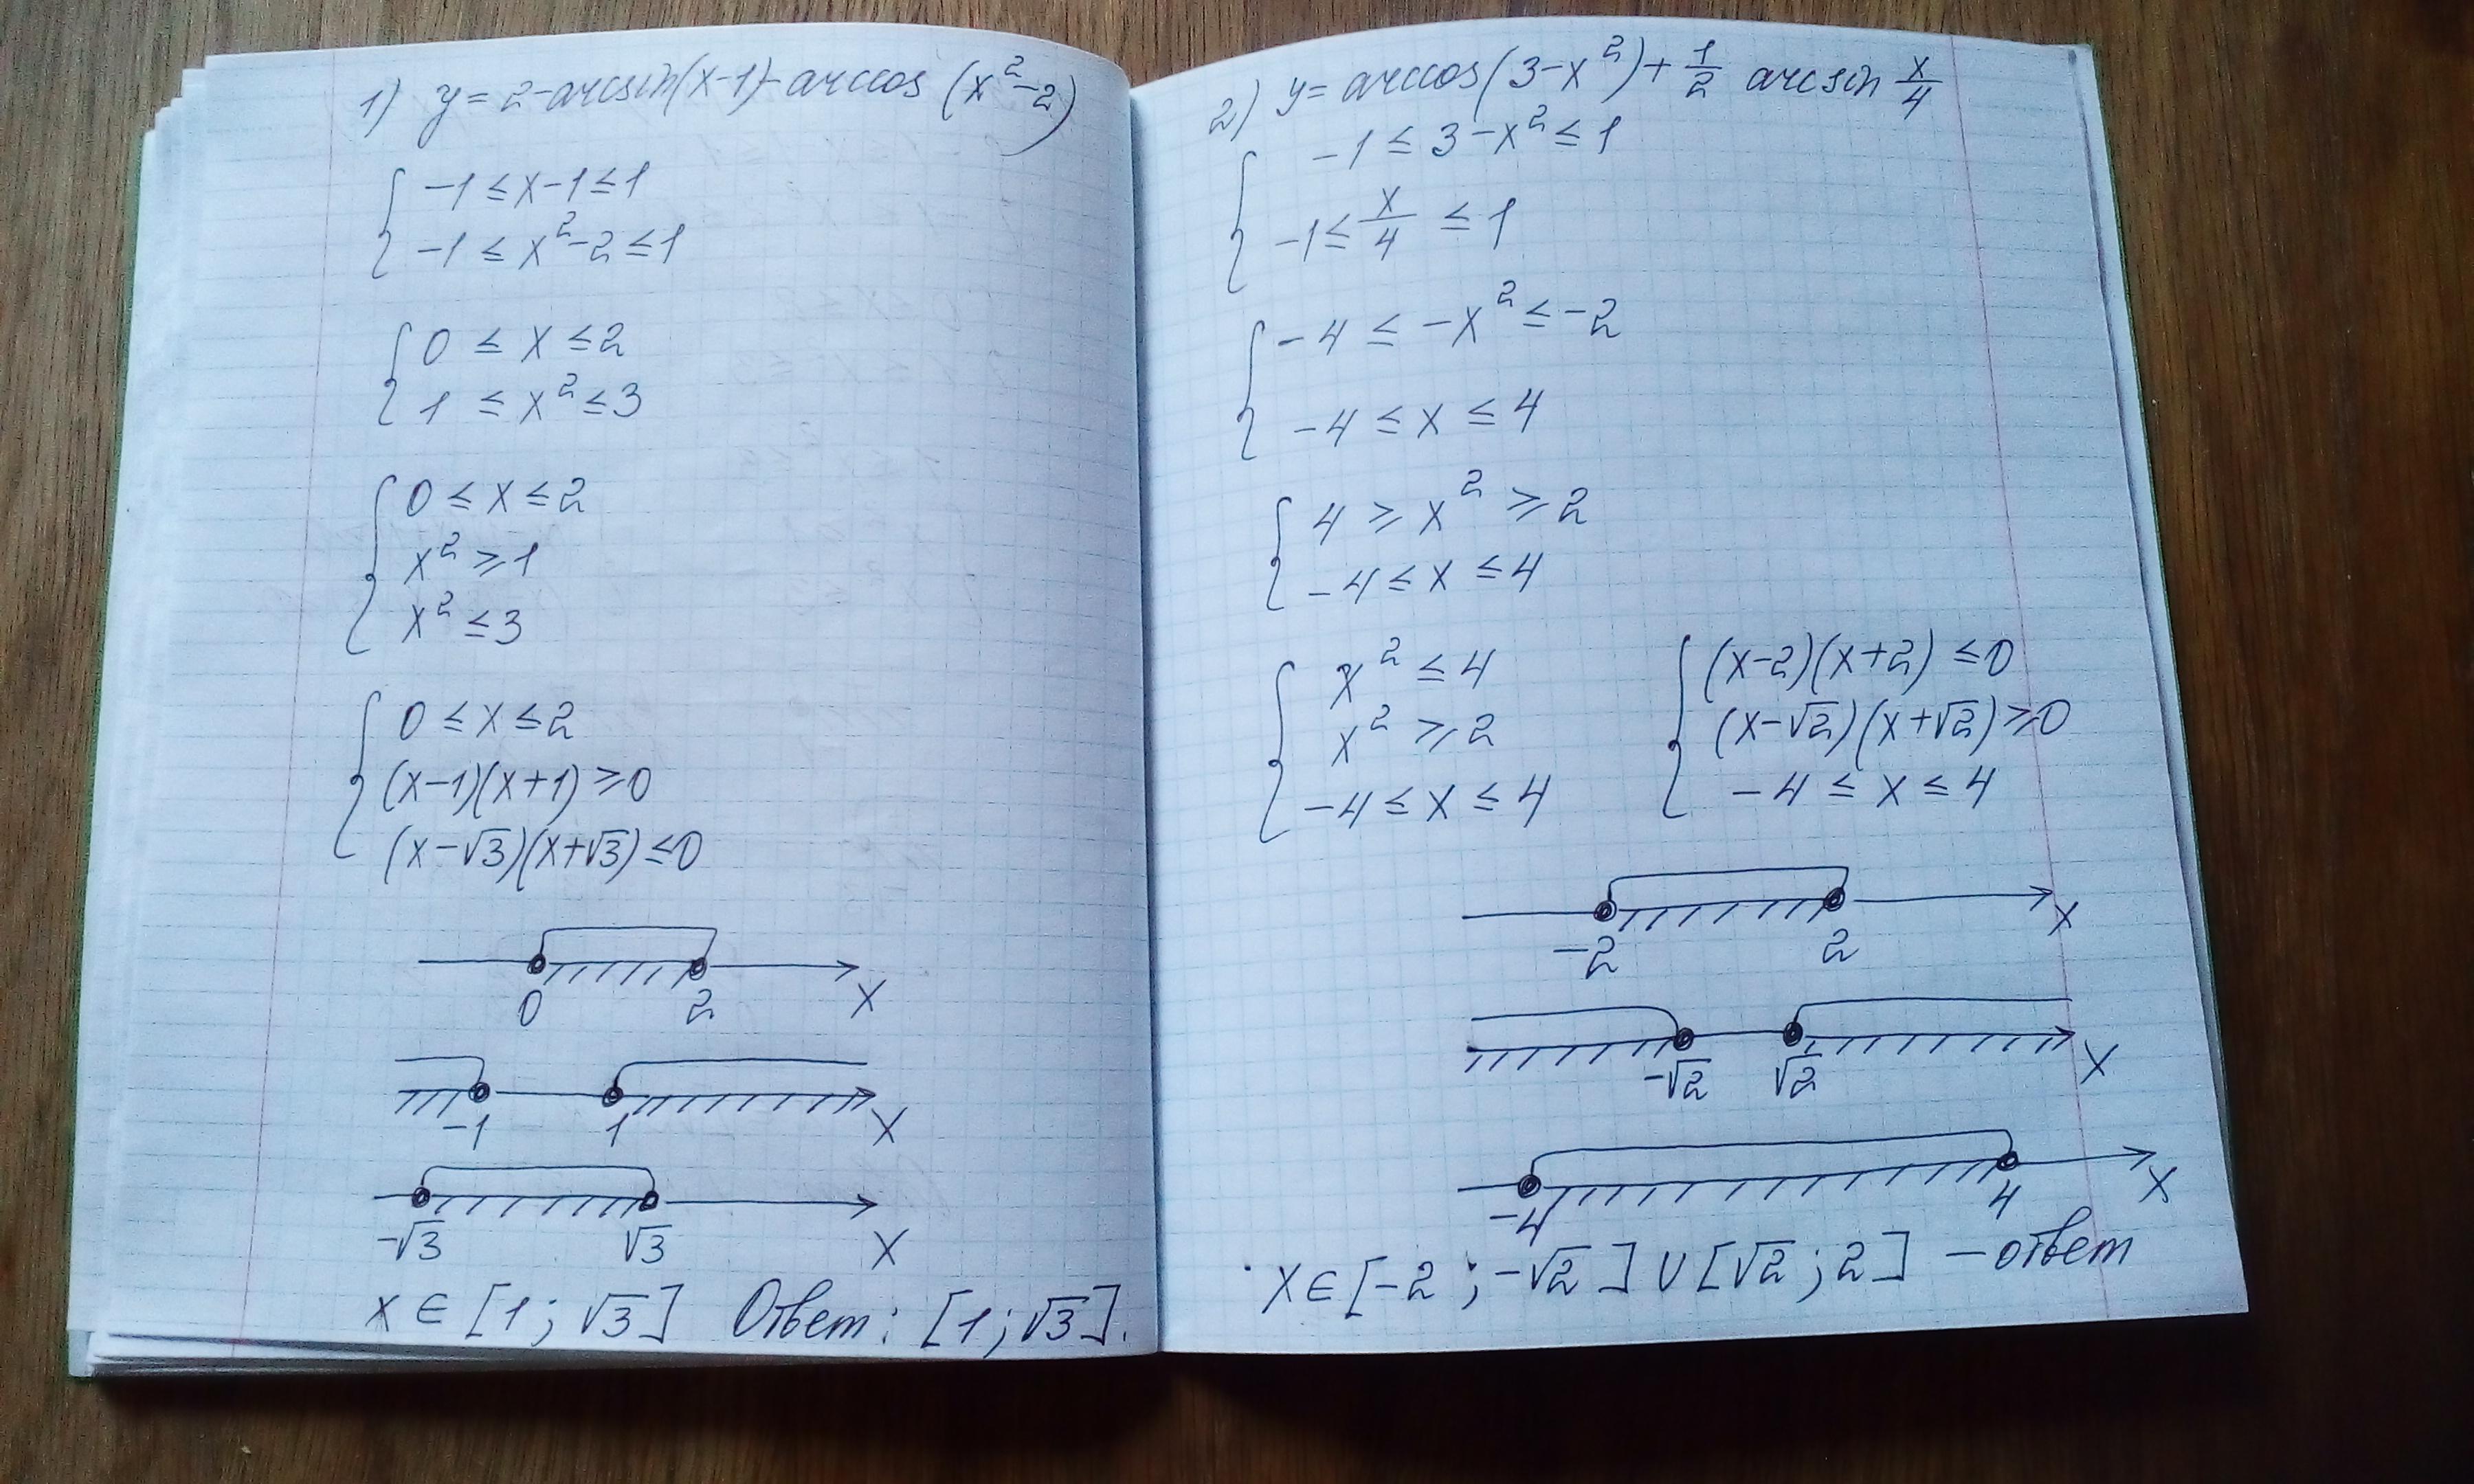 1) y = 2-arcsin(x-1)-arccos (x²-2)
{ -1 ≤ x-1 ≤ 1
-1 ≤ x²-2 ≤ 1
{ 0 ≤ x ≤ 2
1 ≤ x² ≤ 3
{ 0 ≤ x ≤ 2
x² ≥ 1
x² ≤ 3
{ 0 ≤ x ≤ 2
(x-1)(x+1) ≥ 0
(x-√3)(x+√3) ≤ 0
0 2 x
-1 1 x
-√3 √3 x
x ∈ [1; √3] Ответ: [1; √3].
2) y = arccos(3-x²) + 1/2 arcsin x/4
{ -1 ≤ 3-x² ≤ 1
-1 ≤ x/4 ≤ 1
{ -4 ≤ -x² ≤ -2
-4 ≤ x ≤ 4
{ 4 ≥ x² ≥ 2
-4 ≤ x ≤ 4
{ x² ≤ 4
x² ≥ 2
-4 ≤ x ≤ 4
{ (x-2)(x+2) ≤ 0
(x-√2)(x+√2) ≥ 0
-4 ≤ x ≤ 4
-2 2 x
-√2 √2 x
-4 4 x
x ∈ [-2; -√2] ∪ [√2; 2] – ответ